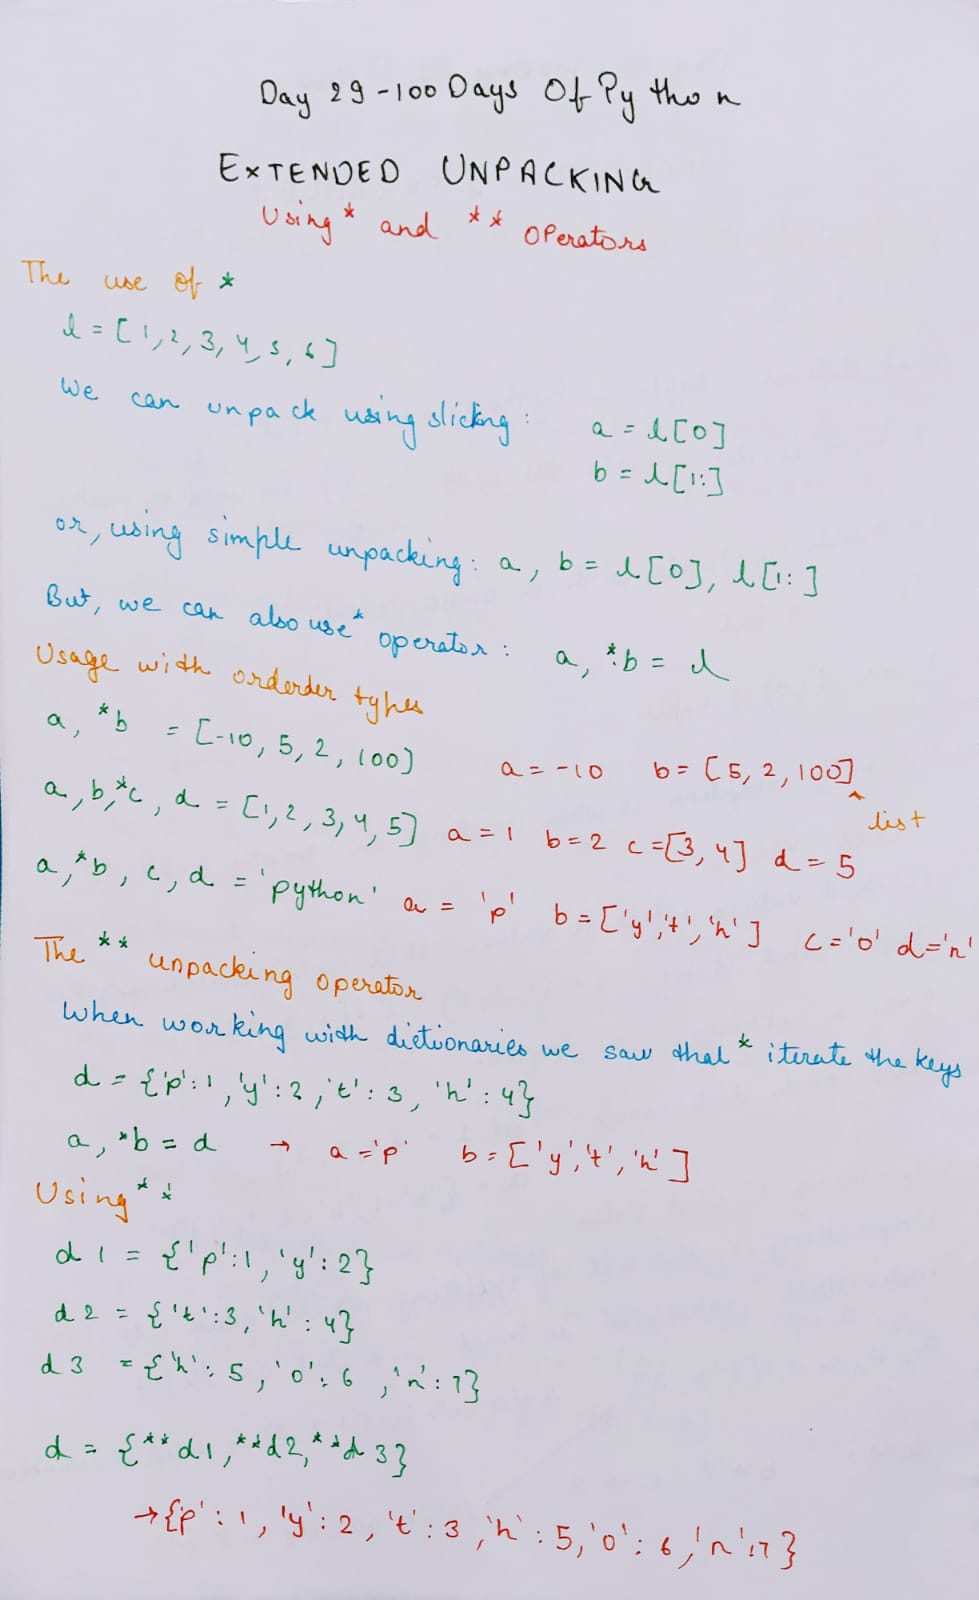 Day 29 - 100 Days Of Python
EXTENDED UNPACKING
Using * and ** operators
The use of *
l = [1, 2, 3, 4, 5, 6]
We can unpack using slicing : a = l[0]
b = l[1:]
or, using simple unpacking: a, b = l[0], l[1:]
But, we can also use * operator : a, *b = l
Usage with orderder types
a, *b = [-10, 5, 2, 100] a = -10 b = [5, 2, 100]
list
a, b, *c, d = [1, 2, 3, 4, 5] a = 1 b = 2 c = [3, 4] d = 5
a, *b, c, d = 'python' a = 'p' b = ['y', 't', 'h'] c = 'o' d = 'n'
The ** unpacking operator
When working with dictionaries we saw that * iterate the keys
d = {'p': 1, 'y': 2, 't': 3, 'h': 4}
a, *b = d → a = 'p' b = ['y', 't', 'h']
Using **
d1 = {'p': 1, 'y': 2}
d2 = {'t': 3, 'h': 4}
d3 = {'h': 5, 'o': 6, 'n': 7}
d = {**d1, **d2, **d3}
→ {'p': 1, 'y': 2, 't': 3, 'h': 5, 'o': 6, 'n': 7}